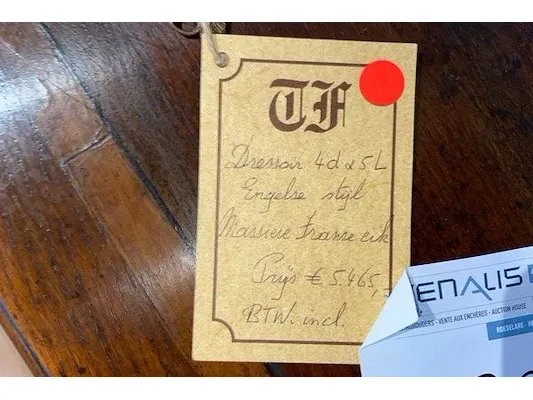 TF
Dressoir 4d x 5L
Engelse stijl
Massieve Franse eik
Prijs € 5.465,-
BTW. incl.
ENALIS
HOUDERS - VENTE AUX ENCHÈRES - AUCTION HOUSE
ROESELARE -